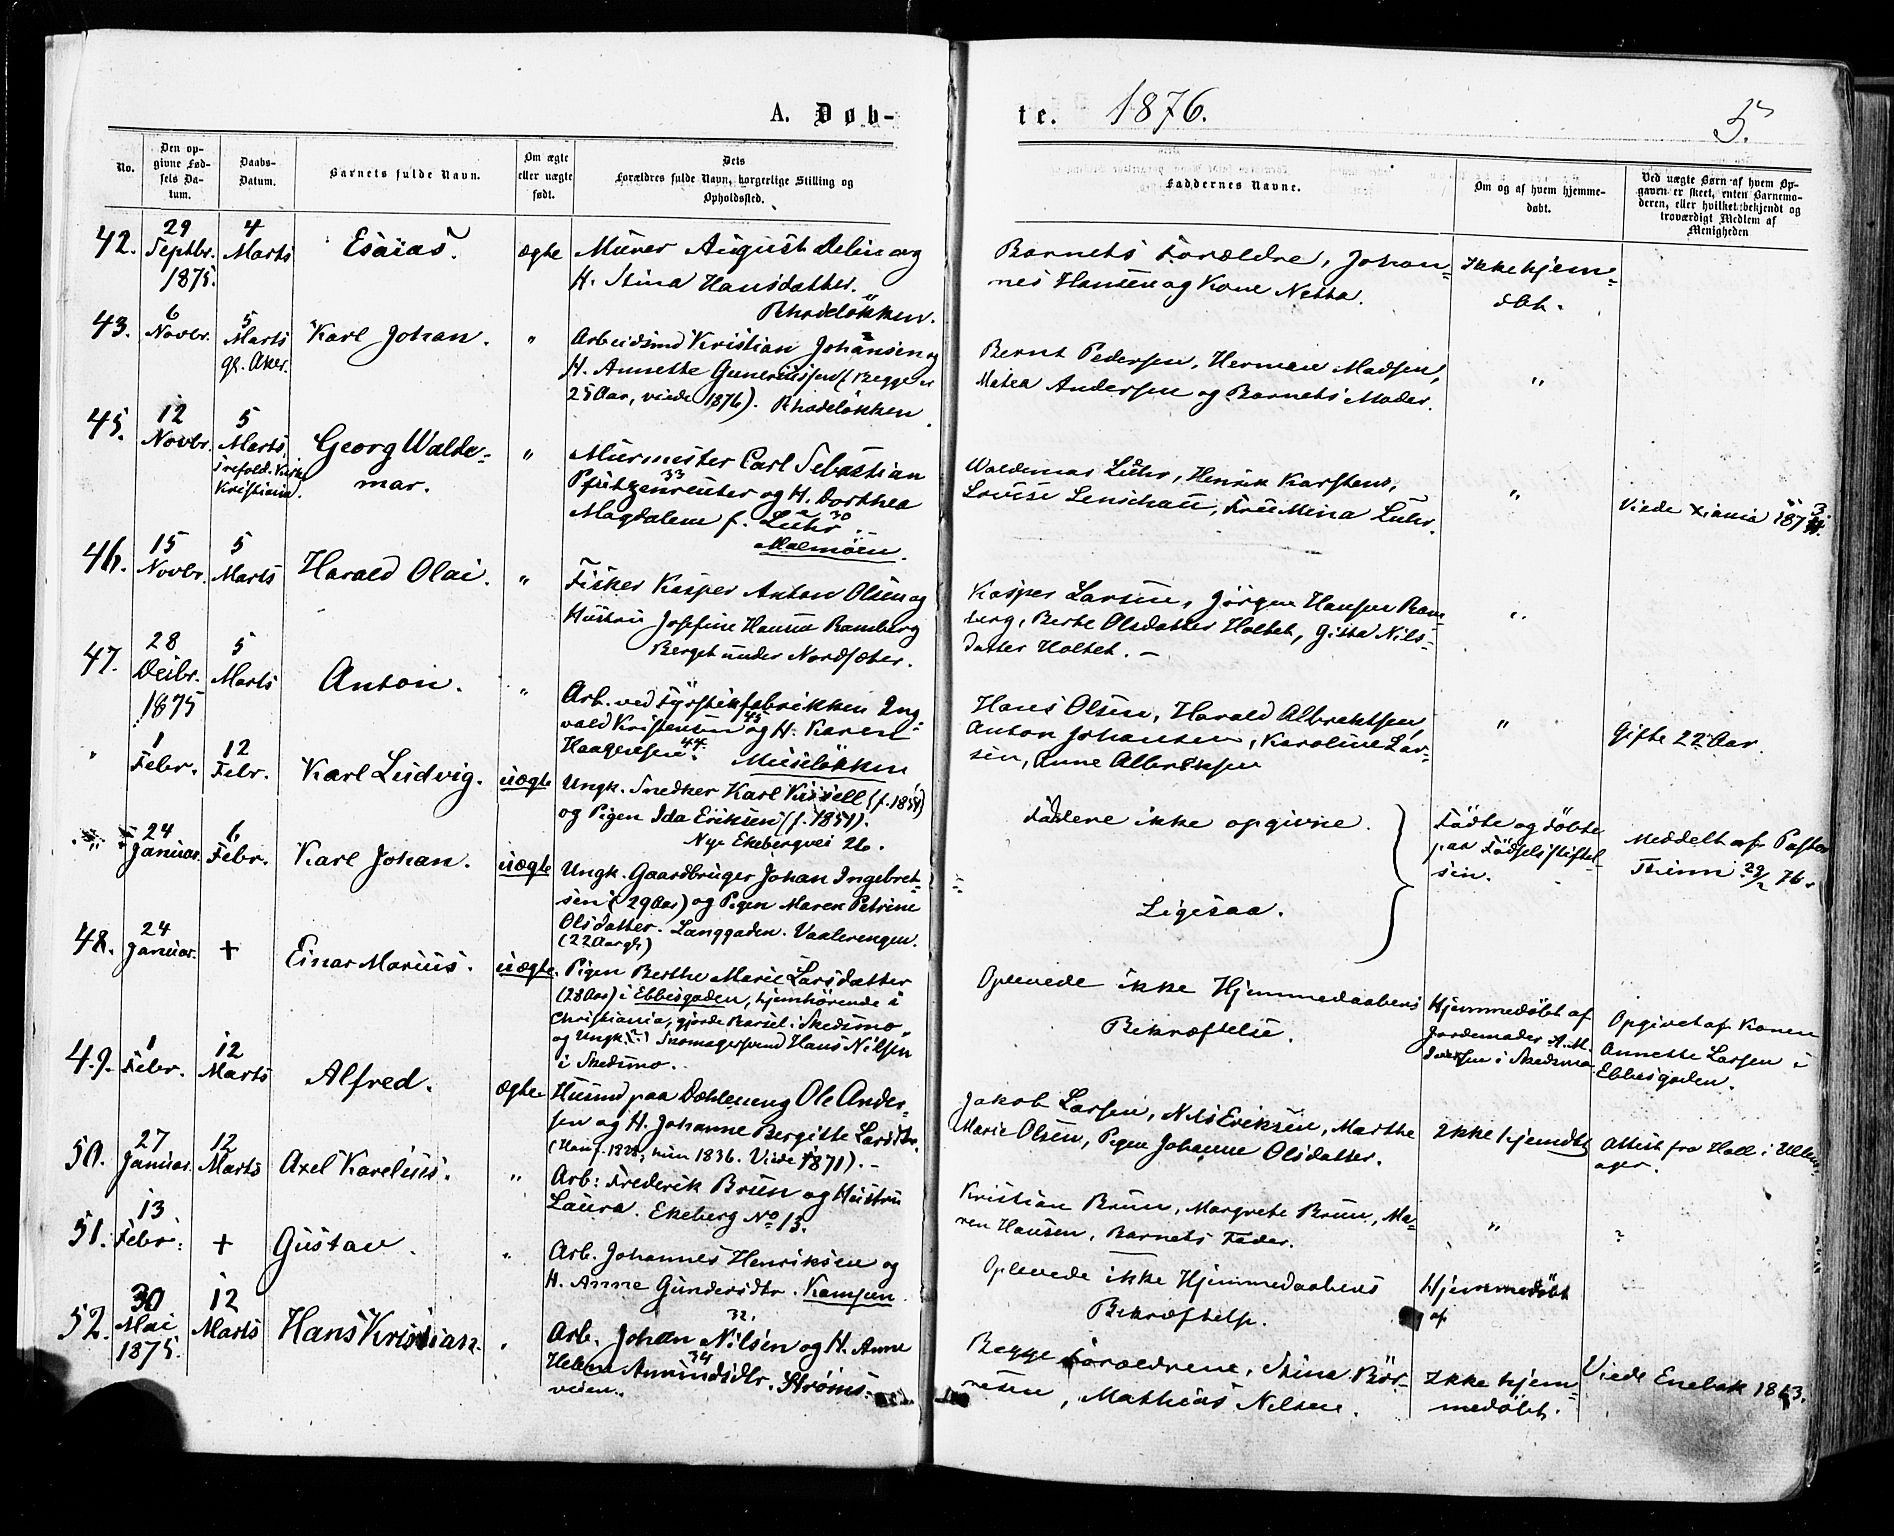 A. Døb-
te. 1876. 5.
No.
Den op-
givne Fød-
sels Da-
tum.
Daabs-
Datum.
Barnets fulde Navn.
Om ægte
eller uægte
født.
Dets
Forældres fulde Navn, borgerlige Stilling og
Opholdssted.
Faddernes Navne.
Om og af hvem hjemme-
døbt.
Ved uægte Børn af hvem Op-
gaven er skeet, enten Barnemo-
deren, eller hvilket bekjendt og
troværdigt Medlem af
Menigheden
42.
29
Septbr.
1875.
4
Marts
Esaias.
ægte
Murer August Delin og
H. Stina Hansdatter.
Rhodeløkken.
Barnets Forældre, Johan-
nes Hansen og Kone Netta.
Ikke hjem-
dbt.
43.
6
Novbr.
5
Marts
gl. Aker.
Karl Johan.
"
Arbeidsmd Kristian Johansen og
H. Annette Gunerius (Begge er
25 Aar, viede 1876). Rhodeløkken.
Bernt Pedersen, Herman Madsen,
Matea Andersen og Barnets Moder.
"
45.
12
Novbr.
5
Marts.
Trefold. Kirke
Kristiania.
Georg Walde-
mar.
"
Murmester Carl Sebastian
Pfützenreuter 33 og H. Dorthea
Magdalene f. Lühr 30.
Malmøen.
Waldemar Lühr, Henrik Karstens,
Lovise Lenschau, Fru Mina Luhr.
"
Viede Xiania 1873.
46.
15
Novbr.
5
Marts
Harald Olai.
"
Fisker Kasper Anton Olsen og
Hustru Josefine Hanna Ramberg
Berget under Nordsæter.
Kasper Larsen, Jörgen Hansen Ram-
berg, Berte Olsdatter Holtet, Gitta Nils-
datter Holtet. –
"
47.
28
Decbr.
1875
5
Marts
Anton.
"
Arb. ved Fyrstikfabrikken Ing-
vald Kristensen 45 og H. Karen
Haagensen 44. Museløkken
Hans Olsen, Harald Albrektsen,
Anton Johansen, Karoline Lar-
sen, Anne Albreksen
"
Gifte 22 Aar.
"
1
Febr.
12
Febr.
Karl Ludvig.
uægte
Ungk. Snedker Karl Kissell (f. 1854)
og Pigen Ida Eriksen (f. 1854).
Nye Ekebergvei 26.
Faddere ikke opgivne.
Födte og döbte
paa Födselsstiftel-
sen.
Meddelt af Pastor
Thinn 29/2 76.
"
24
Januar.
6
Febr.
Karl Johan.
uægte
Ungk. Gaardbruger Johan Ingebret-
sen (29 Aar) og Pigen Maren Petrine
Olsdatter. Langgaden. Vaalerengen.
(22 Aar gl.)
Ligesaa.
48.
24
Januar.
+
Einar Marius.
uægte.
Pigen Berthe Marie Larsdatter
(28 Aar) i Ebbesgaden, hjemhörende i
Christiania, gjorde Barsel i Skedsmo.
og Ungk. Skomagersvend Hans Nilsen
i Skedsmo.
Oplevede ikke Hjemmedaabens
Bekræftelse.
Hjemmedøbt af
Jordemoder A. M.
i Skedsmo
Opgivet af Konen
Annette Larsen i
Ebbesgaden.
49.
1
Febr.
12
Marts
Alfred.
ægte
Husmd paa Dæhleneng Ole Ander-
sen og H. Johanne Bergitte Larsdtr.
(Han f. 1828, hun 1836. Viede 1871). –
Jakob Larsen, Nils Eriksen, Marthe
Marie Olsen, Pigen Johanne Olsdatter.
Ikke hjemdbt
Attest fra Holl i Ullens-
ager.
50.
27
Januar.
12
Marts
Axel Karelius.
"
Arb: Frederik Brun og Hustru
Laura. Ekeberg No 13.
Kristian Brun, Margrete Brun, Ma-
ren Hansen, Barnets Fader.
"
?
51.
13
Febr:
+
Gustav.
"
Arb. Johannes Henriksen og
H. Anne Gundersdtr. Kampen.
Oplevede ikke Hjemmedaabens
Bekræftelse.
Hjemmedøbt
af
52.
30
Mai
1875.
12
Marts
Hans Kristian.
"
Arb. Johan Nilsen 32. og H. Anne
Helene Amundsdtr. 34 Strøms-
veien.
Begge Foraldrene, Stine Bör-
resen, Mathias Nilsen.
Ikke hjem-
medøbt.
Viede Enebak 1863.